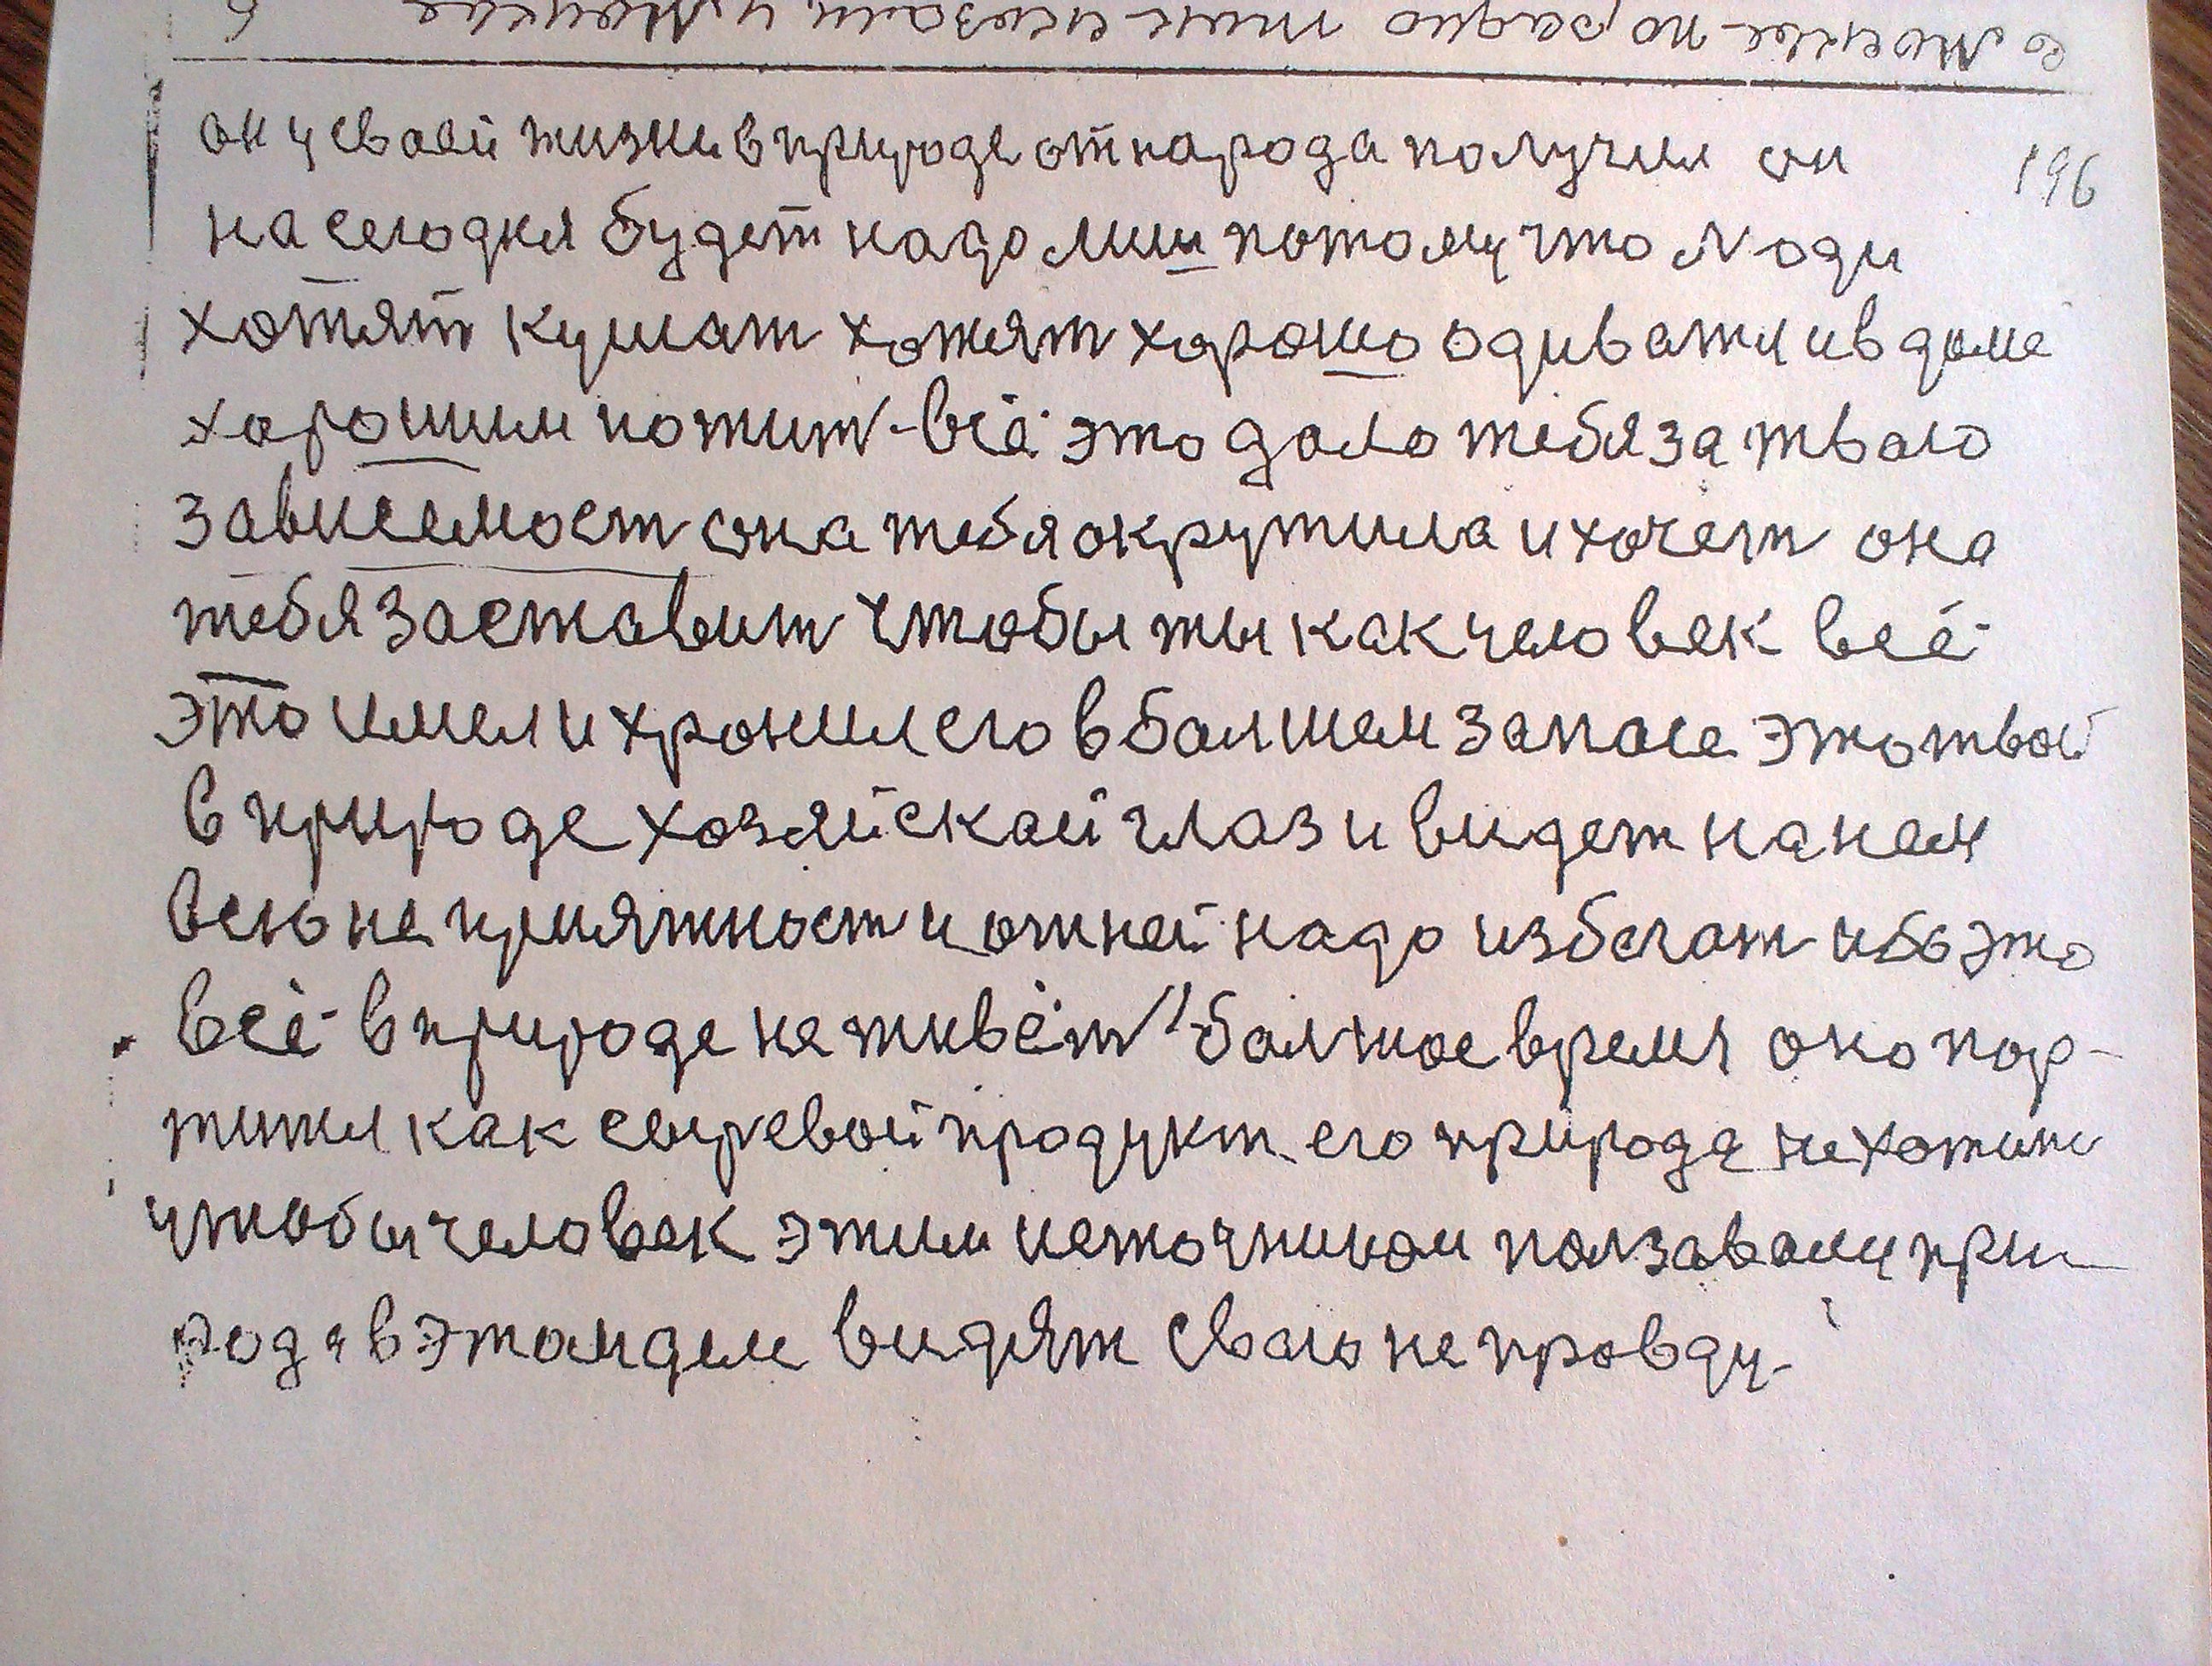 он у сваей жизни в природе от народа получил он
196
на сегодня будет надо мии потому что люди
хотят кушат хотят хорошо одиватися в доме
хорошим пожит всё это дало тебя за тваю
зависемост она тебя окрутила и хочет она
тебя заставит чтобы ты как человек всё
это имел и хронил его в балшем запасе это твой
в природе хозяйскай глаз и видет на нем
всю не приятност и от ней надо избегат ибо это
всё в природе не живёт балшое время оно пор-
тится как сыревой продукт его природа не хотит
чтобы человек этим источником ползавался при
рода в этом деле видят сваю не провду.